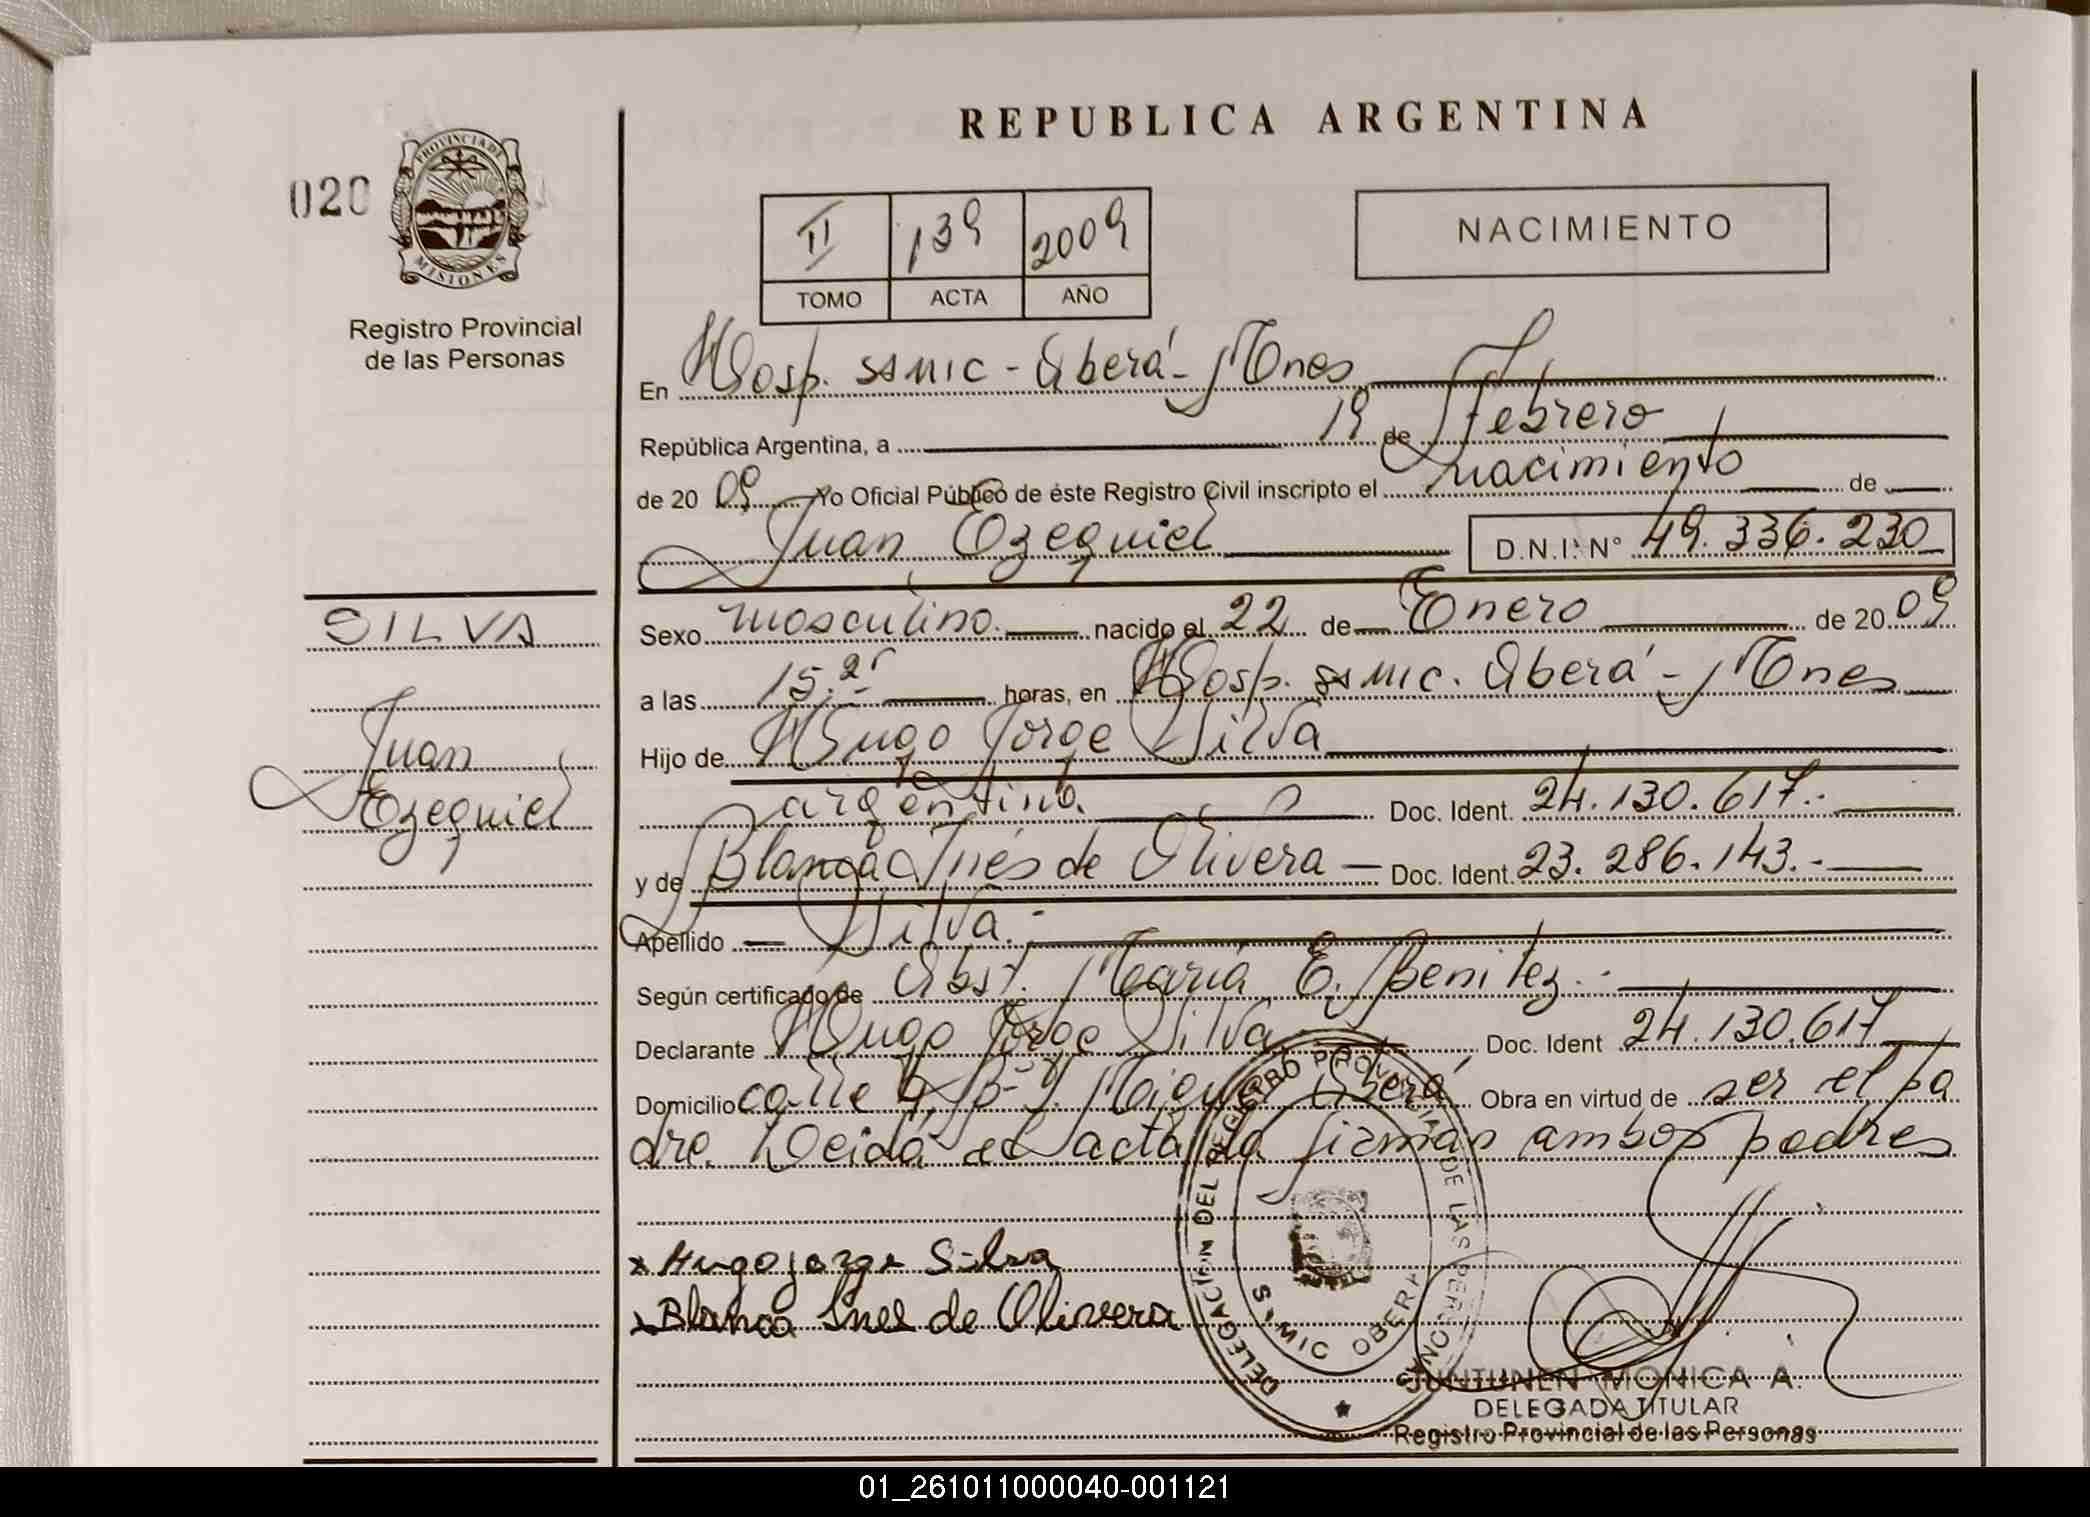 REPUBLICA ARGENTINA
020
PROVINCIA DE
MISIONES
Registro Provincial
de las Personas
II 139 2009
TOMO ACTA AÑO
NACIMIENTO
En Hosp. SAMIC - Oberá - Mnes
República Argentina, a 19 de Febrero
de 20 09 Yo Oficial Público de éste Registro Civil inscripto el nacimiento de
Juan Ezequiel D.N.I. N° 49.336.230
SILVA
Juan
Ezequiel
Sexo masculino. nacido el 22 de Enero de 20 09
a las 15.2 horas, en Hosp. SAMIC. Oberá - Mnes
Hijo de Hugo Jorge Silva
argentino. Doc. Ident. 24.130.617.-
y de Blanca Inés de Olivera Doc. Ident. 23.286.143.-
Apellido Silva.-
Según certificado de Obst. María E. Benitez.-
Declarante Hugo Jorge Silva Doc. Ident 24.130.617
Domicilio calle 4, Oberá Obra en virtud de ser el pa
dre. Leída el acta la firman ambos padres
x Hugo jorge Silva
x Blanca Ines de Olivera
DELEGACION DEL REGISTRO PROVINCIAL DE LAS PERSONAS
SAMIC OBERA
JUNTUNEN MONICA A.
DELEGADA TITULAR
Registro Provincial de las Personas
01_261011000040-001121